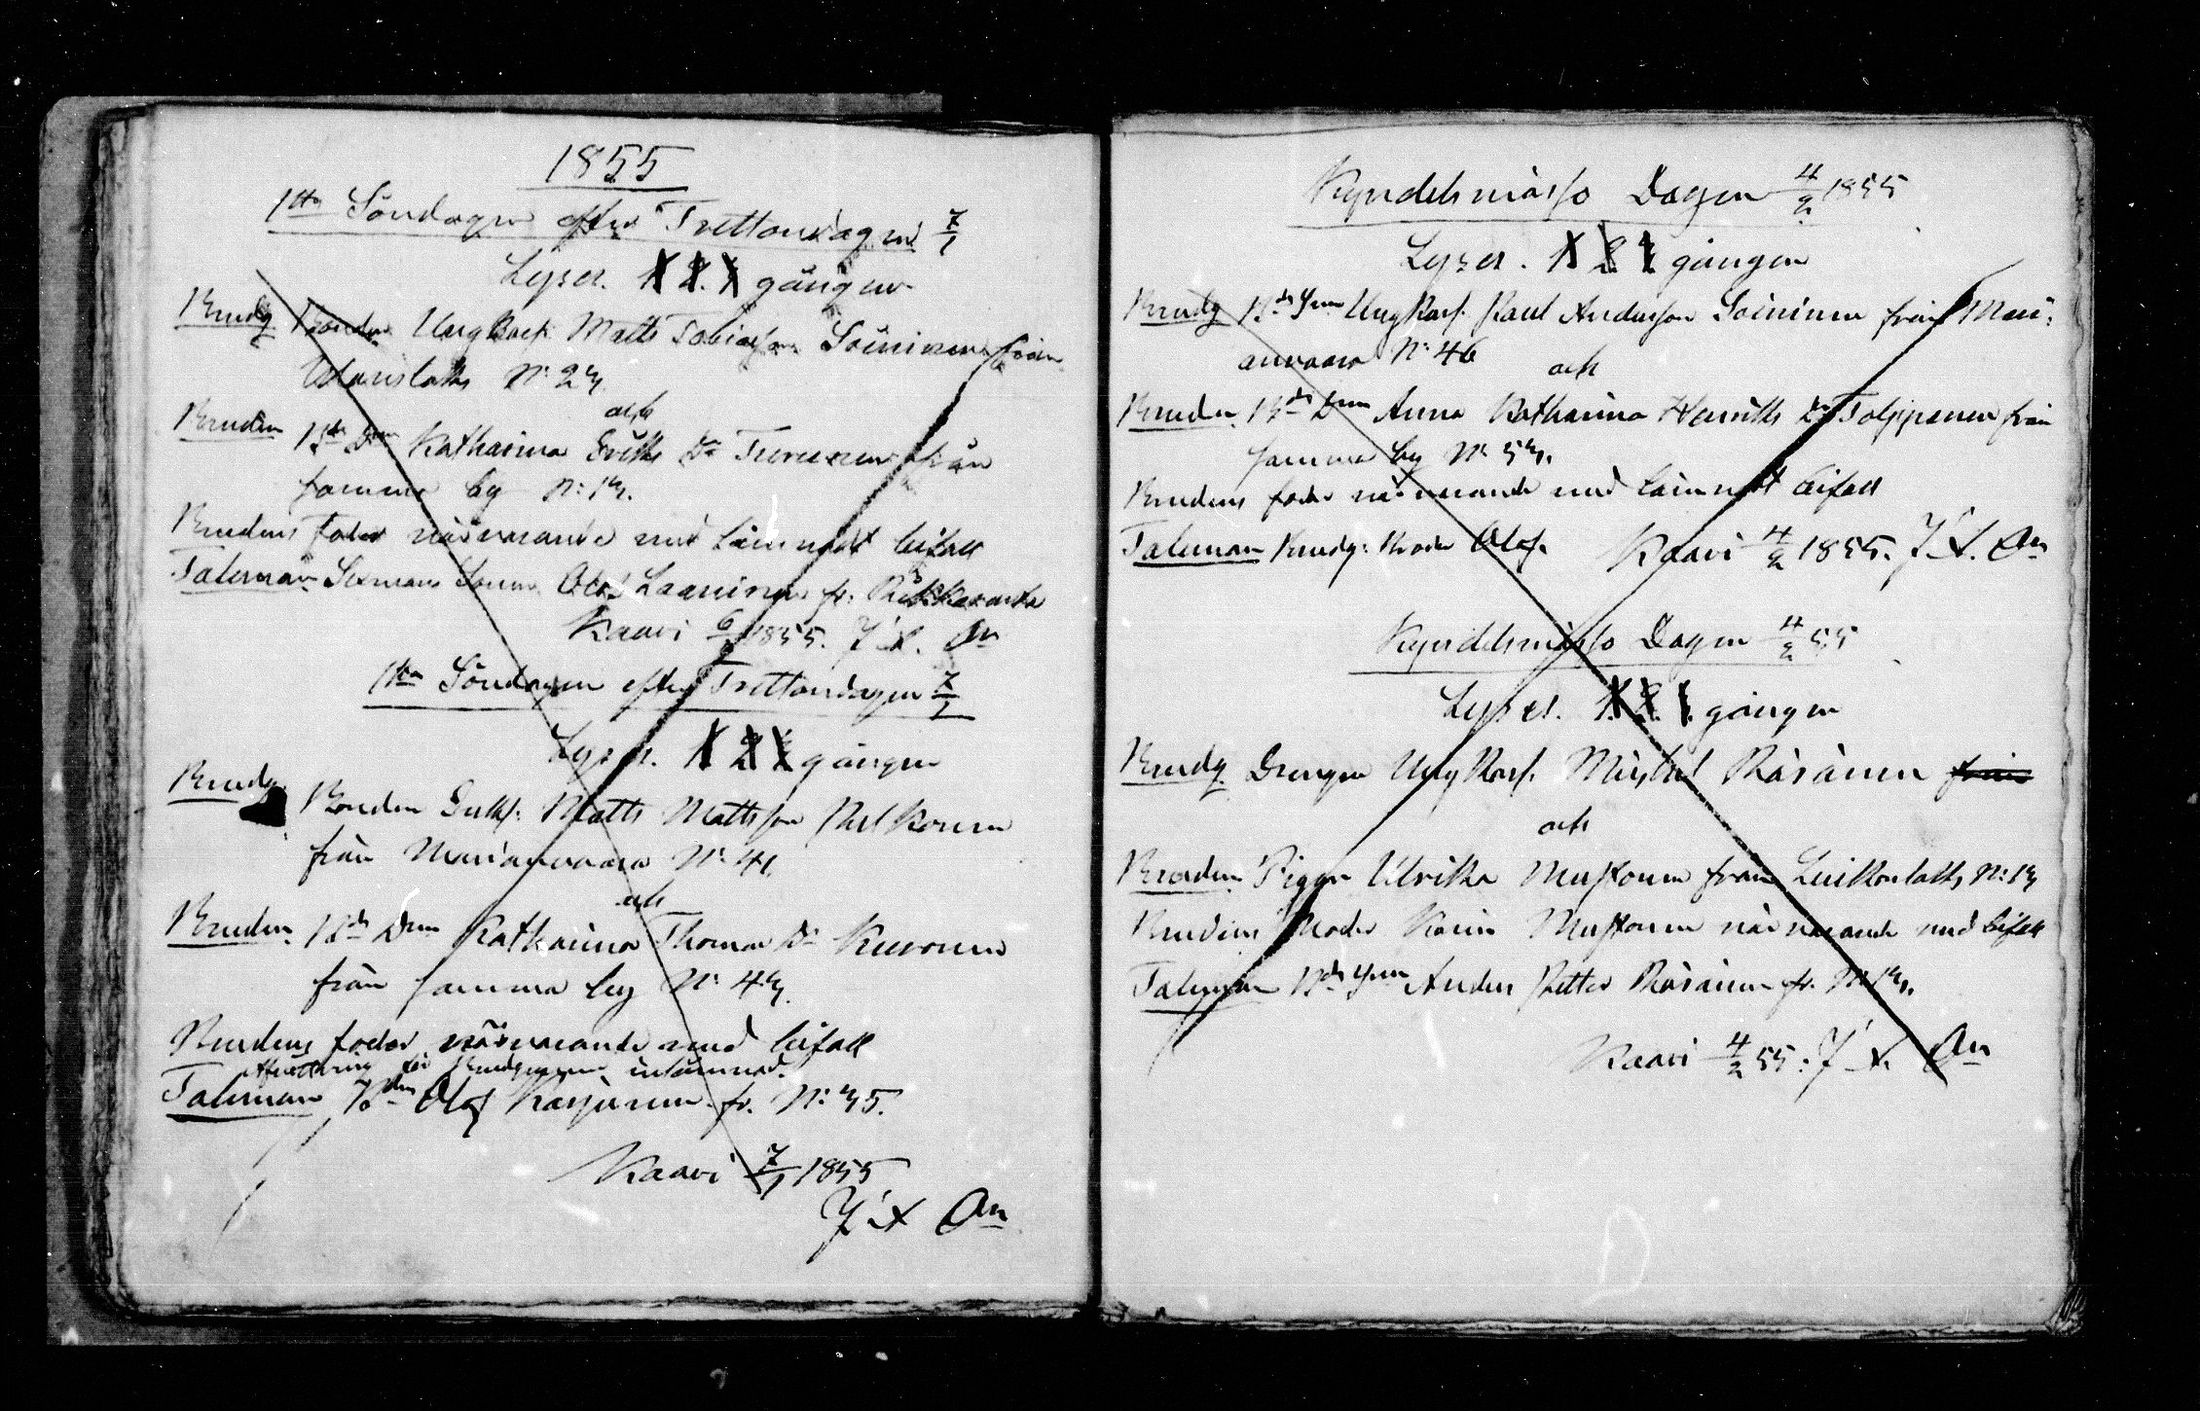 1855
1sta Söndagen efter Trettondagen 7/1
Lyses. 1. 2. 3 gången
Brudg Bonden Ungkarl. Matts Tobiasson Soininen från
N: 23.
och
Bruden Bde Dttn Katharina Eriks Dr Turunen från
samma by N: 13.
Brudens Fader närvarande med lämnadt bifall
Taleman Sexmans Sonen Olof Laaninen fr.
Kaavi 6/1 1855. J. A. Ān
1sta Söndagen efter Trettondagen 7/1
Lyses. 1 2 3 gången
Brudg. Bonden Enkl. Matts Mattsson Pulkonen
från Marianvaara N: 41.
och
Bruden. Bde Dttn Katharina Thomas Dr Kuronen
från samma by N: 43.
Brudens fader närvarande med bifall
Afvittring för Brudgummen inlämnad.
Taleman Olof Karjunen fr. N: 35.
Kaavi 7/1 1855
J. A Ān
Kyndelsmässo Dagen 4/2 1855
Lyses. 1 2 3 gången
Brudg Bde Sonen Ungkarl. Paul Andersson Soininen från Mari:
anvaara N: 46
och
Bruden. Bde Dttn Anna Katharina Henriks Dr Tolppanen från
samma by N: 53.
Brudens fader närvarande med lämnadt bifall
Taleman Brudg: Broder Olof. Kaavi 4/2 1855. J. A. Ān
Kyndelsmässo Dagen 4/2 55
Lyses. 1. 2. 3. gången
Brudg Drengen Ungkarl. Michel Räsänen från
och
Bruden. Pigan Ulrika Mustonen från Luikonlaks N: 13
Brudens Moder Karin Mustonen närvarande med bifall
Taleman Bde Sonen Anders Petter Räsänen fr. N: 13.
Kaavi 4/2 55. J. A. Ān